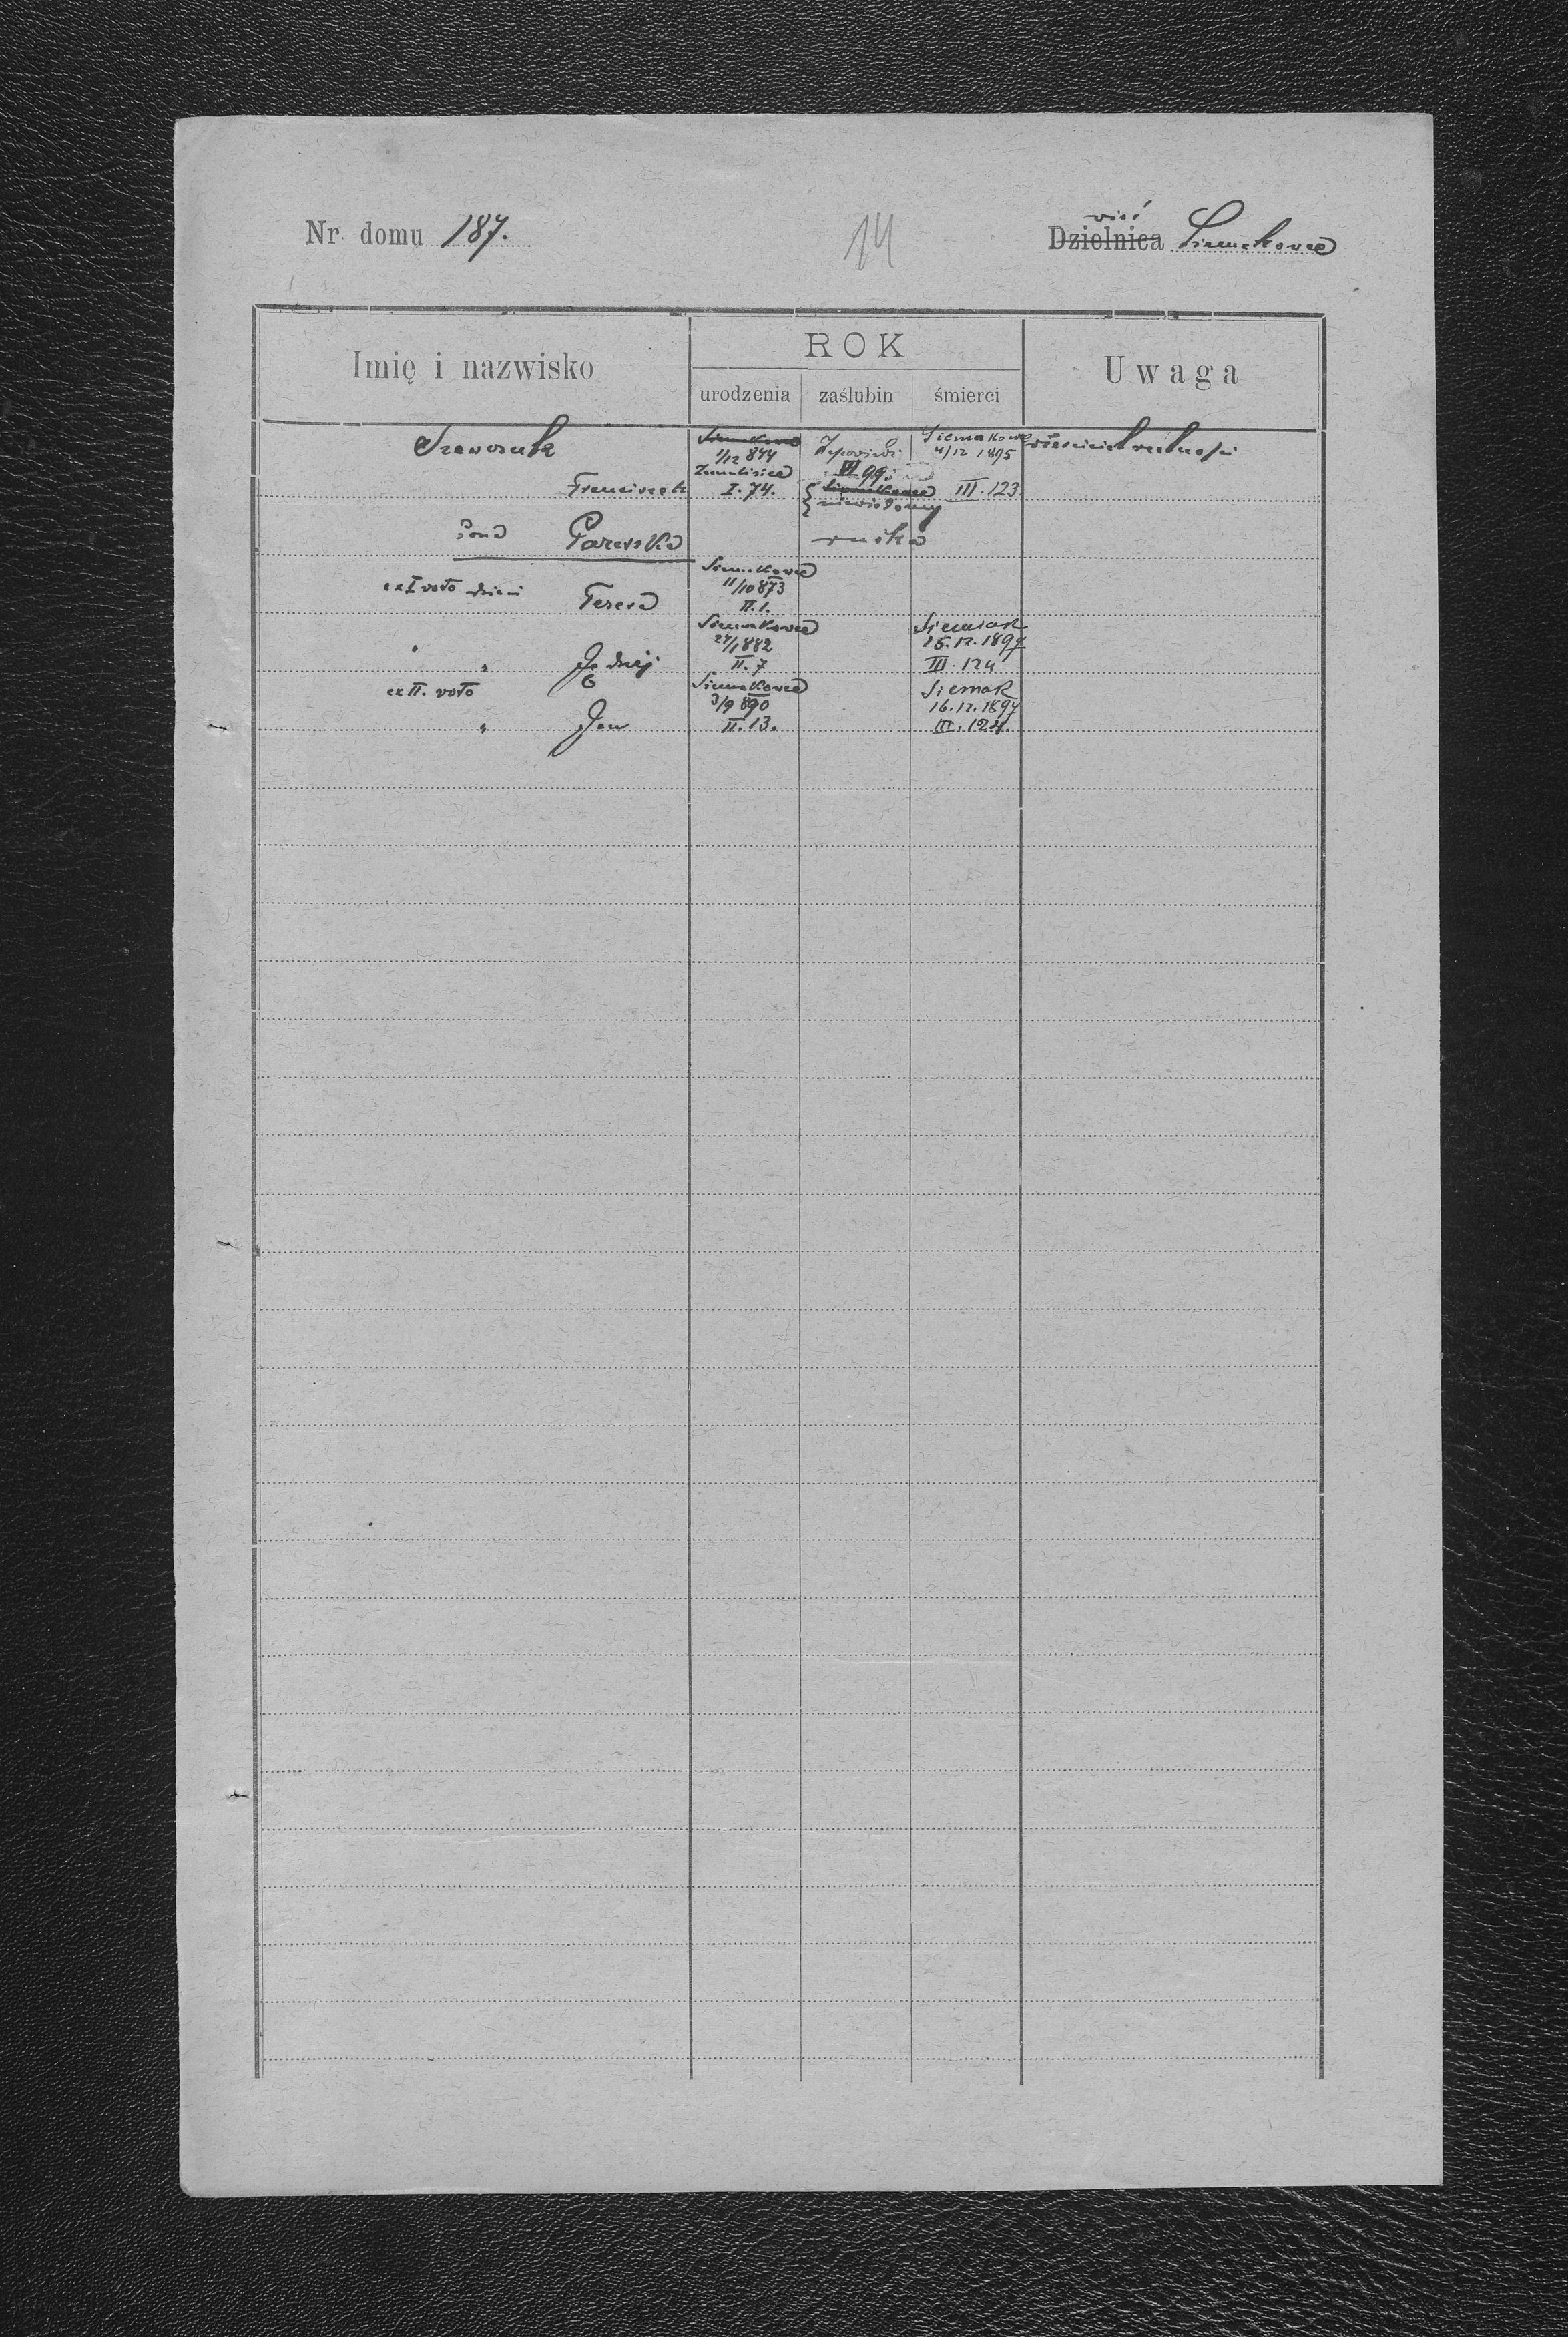 wieś
Nr domu 187. 14 Dzielnica Siemakowce
Imię i nazwisko ROK Uwaga
urodzenia zaślubin śmierci
Szewczuk Siemakowce Zapowiedzi Siemakowce właściciel realności
1/12 844 VI 99. 4/12 1895
Franciszek I. 74. Siemakowce III. 123
niewiadomy
żona Paraska ruska
Siemakowce
ex I voto dzieci Teresa 11/10 873
II. 1.
Siemakowce Siemiak
27/1 882 15.12.1897
" " Jędrzej II. 7 III. 124
ex II. voto Siemakowce Siemak
3/9 890 16.12.1897
" Jan II. 13. III. 124.